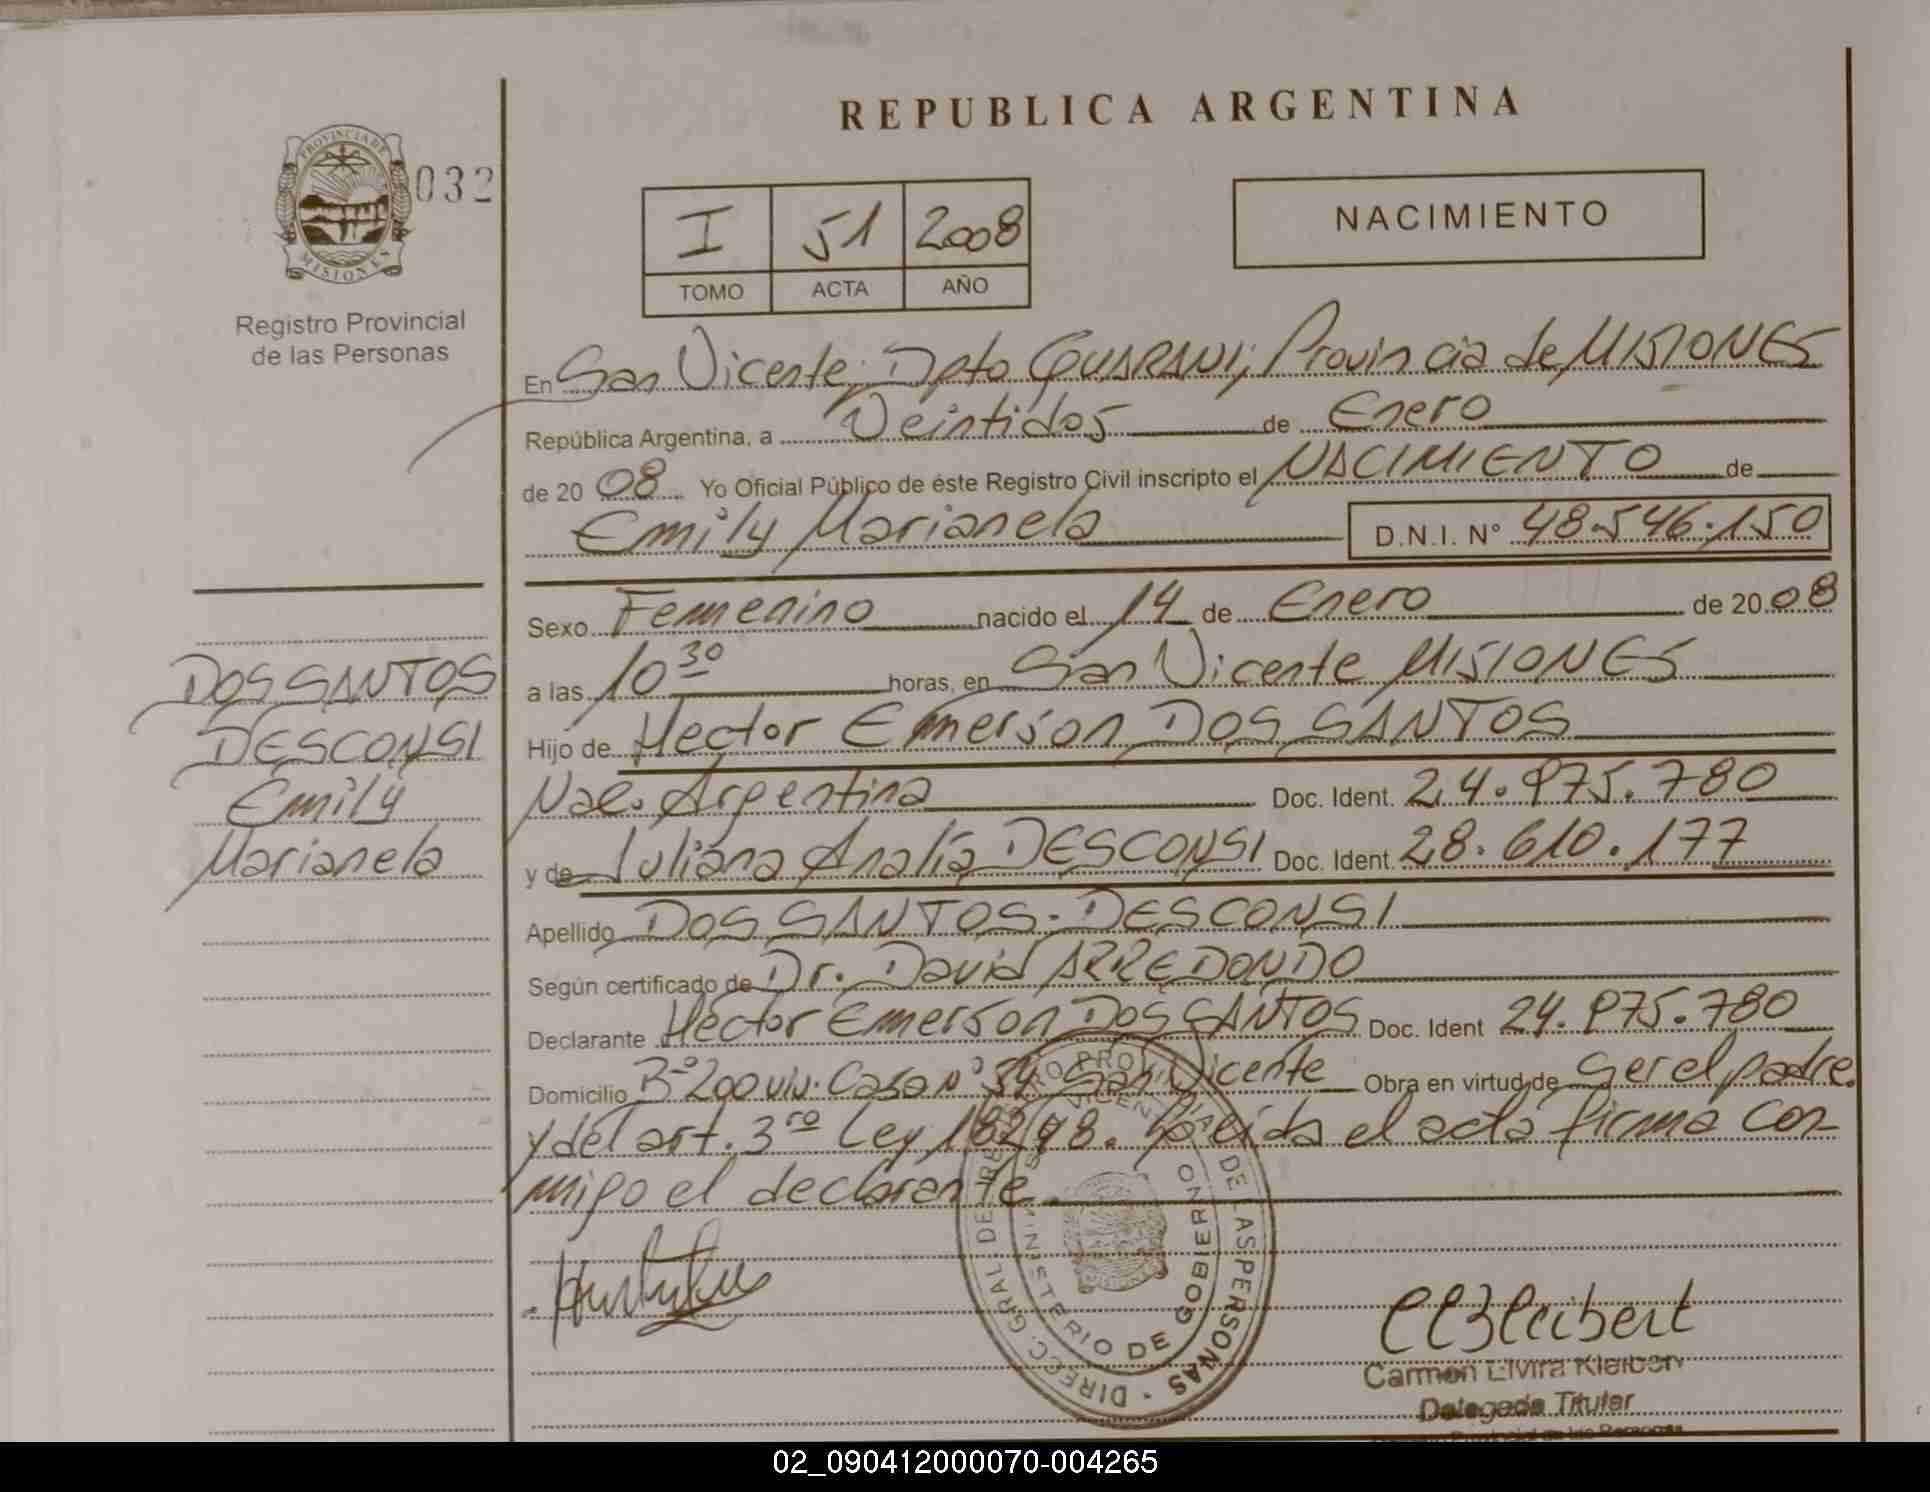 REPUBLICA ARGENTINA
PROVINCIA DE MISIONES
032
Registro Provincial
de las Personas
I 51 2008
TOMO ACTA AÑO
NACIMIENTO
En San Vicente, Dpto GUARANI, Provincia de MISIONES
República Argentina, a Veintidos de Enero
de 2008 Yo Oficial Público de éste Registro Civil inscripto el NACIMIENTO de
Emily Marianela D.N.I. Nº 48.546.150
Sexo Femenino nacido el 14 de Enero de 2008
a las 10 30 horas, en San Vicente MISIONES
Hijo de Hector Emerson DOS SANTOS
Nac. Argentina Doc. Ident. 24.975.780
y de Juliana Analía DESCONSI Doc. Ident. 28.610.177
Apellido DOS SANTOS-DESCONSI
Según certificado de Dr. David ARREDONDO
Declarante Héctor Emerson DOS SANTOS Doc. Ident 24.975.780
Domicilio Bº 200 viv. Casa Nº 54 San Vicente Obra en virtud de Ser el padre
y del art. 3ro Ley 18248. Leída el acta firma con
migo el declarante
DOS SANTOS
DESCONSI
Emily
Marianela
DIRECC. GRAL DE REGISTRO PROVINCIAL DE LAS PERSONAS
MINISTERIO DE GOBIERNO
SAN VICENTE
Carmen Elvira Kleibert
Delegada Titular
Registro Provincial de las Personas
02_090412000070-004265